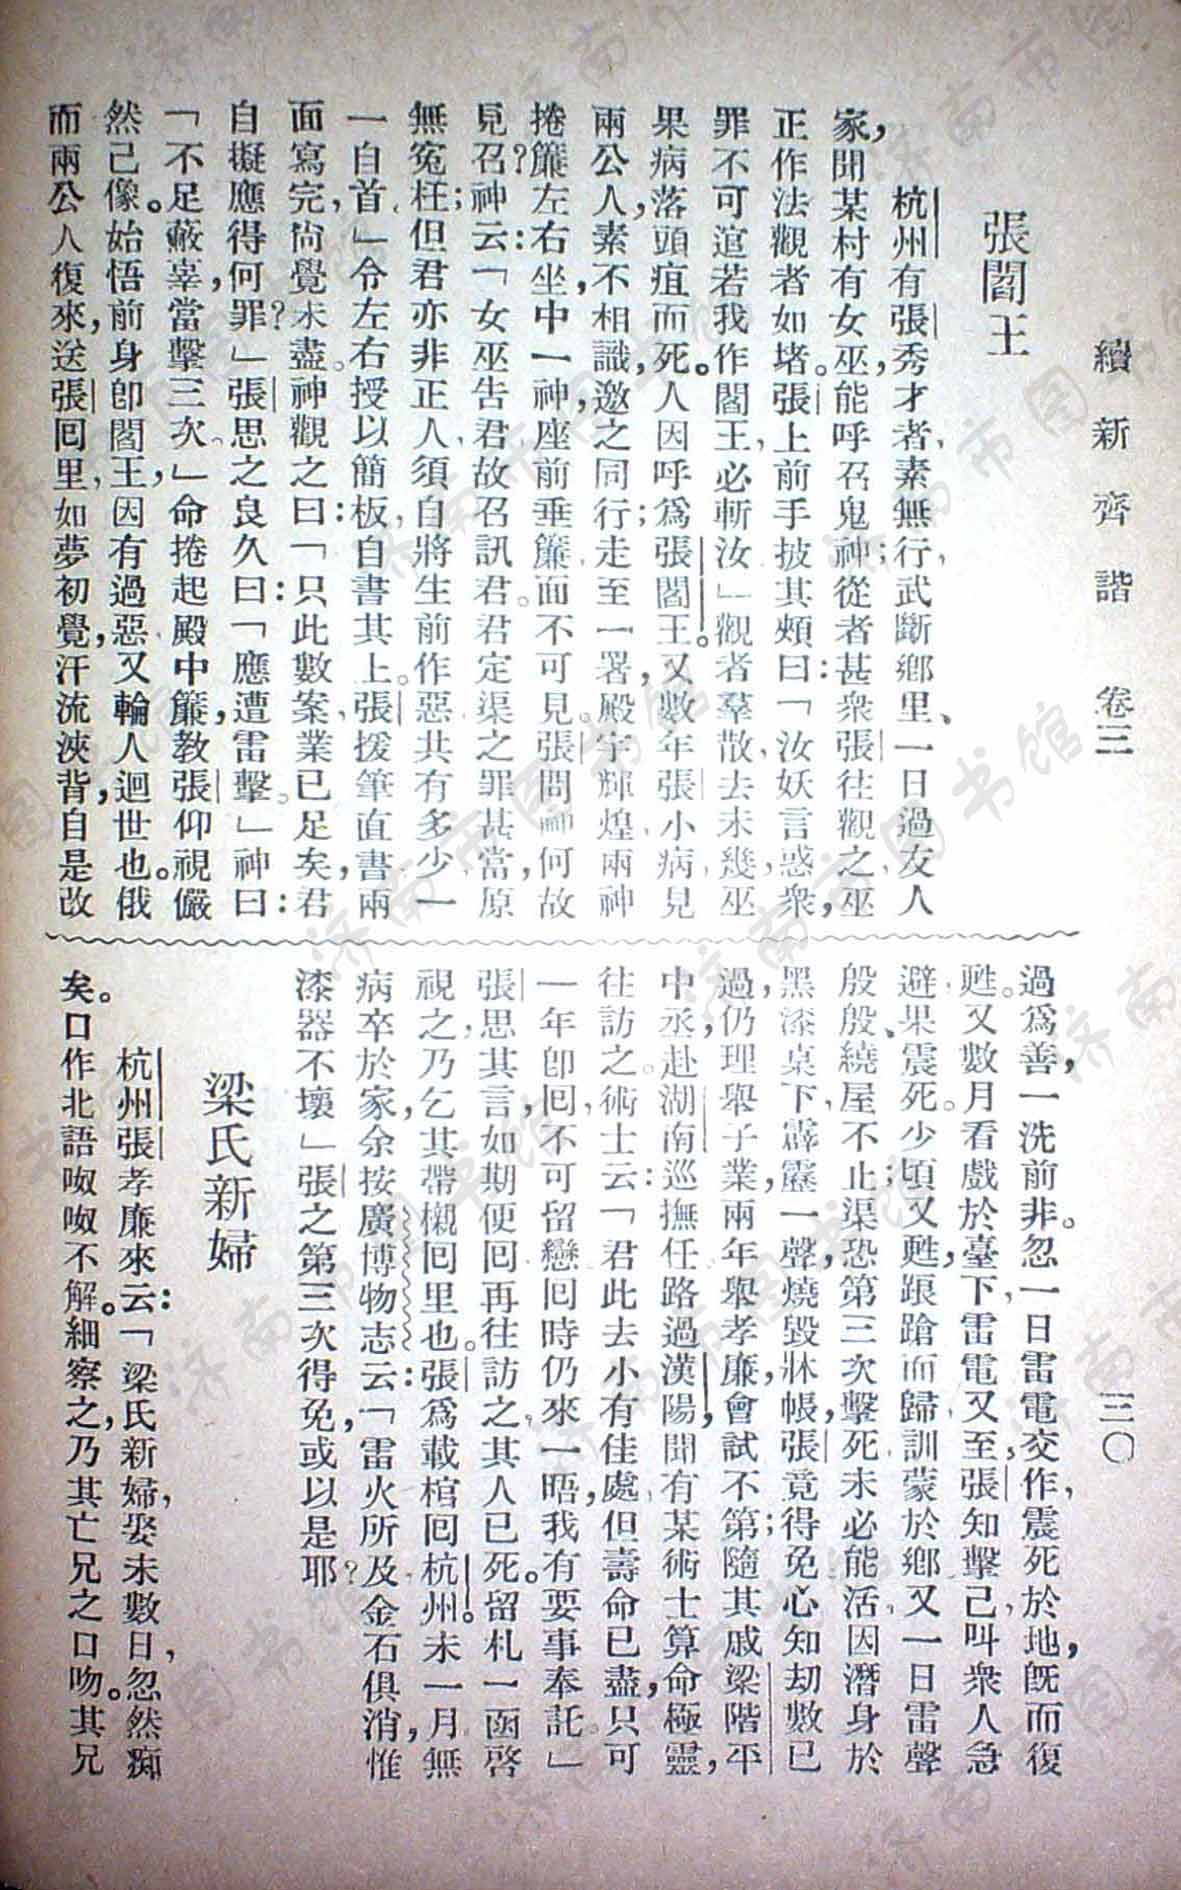 續新齊諧　卷三　三〇
張閻王
杭州有張秀才者，素無行，武斷鄉里、一日過友人
家，聞某村有女巫，能呼召鬼神；從者甚衆，張往觀之，巫
正作法，觀者如堵。張上前手披其頰曰：「汝妖言惑衆，
罪不可逭，若我作閻王，必斬汝」觀者羣散，去未幾，巫
果病落頭疽而死。人因呼爲張閻王。又數年，張小病，見
兩公人，素不相識，邀之同行；走至一署，殿宇輝煌，兩神
捲簾左右坐，中一神，座前垂簾，面不可見。張問神何故
見召？神云：「女巫告君，故召訊君。君定渠之罪甚當，原
無冤枉；但君亦非正人，須自將生前作惡共有多少，一
一自首」令左右授以簡板，自書其上。張援筆直書，兩
面寫完，尙覺未盡。神觀之曰：「只此數案，業已足矣，君
自擬應得何罪？」張思之良久曰：「應遭雷擊。」神曰：
「不足蔽辜，當擊三次。」命捲起殿中簾，教張仰視，儼
然己像。始悟前身卽閻王，因有過惡，又輪人迴世也。俄
而兩公人復來，送張囘里，如夢初覺，汗流浹背，自是改
過爲善，一洗前非。忽一日雷電交作，震死於地，旣而復
甦。又數月看戲於臺下，雷電又至，張知擊己，叫衆人急
避，果震死。少頃又甦，踉蹌而歸，訓蒙於鄉；又一日雷聲
殷殷、繞屋不止，渠恐第三次擊死，未必能活，因潛身於
黑漆桌下，霹靂一聲，燒毀牀帳，張竟得免，心知劫數已
過，仍理舉子業，兩年舉孝廉，會試不第；隨其戚梁階平
中丞，赴湖南巡撫任，路過漢陽，聞有某術士算命極靈，
往訪之，術士云：「君此去小有佳處，但壽命已盡，只可
一年卽囘，不可留戀，囘時仍來一晤，我有要事奉託。」
張思其言，如期便囘，再往訪之，其人已死。留札一函，啓
視之，乃乞其帶櫬囘里也。張爲載棺囘杭州。未一月，無
病卒於家，余按廣博物志云：「雷火所及，金石俱消，惟
漆器不壞」張之第三次得免，或以是耶？
梁氏新婦
杭州張孝廉來云：「梁氏新婦，娶未數日，忽然痴
矣。口作北語呶呶不解。細察之，乃其亡兄之口吻。其兄